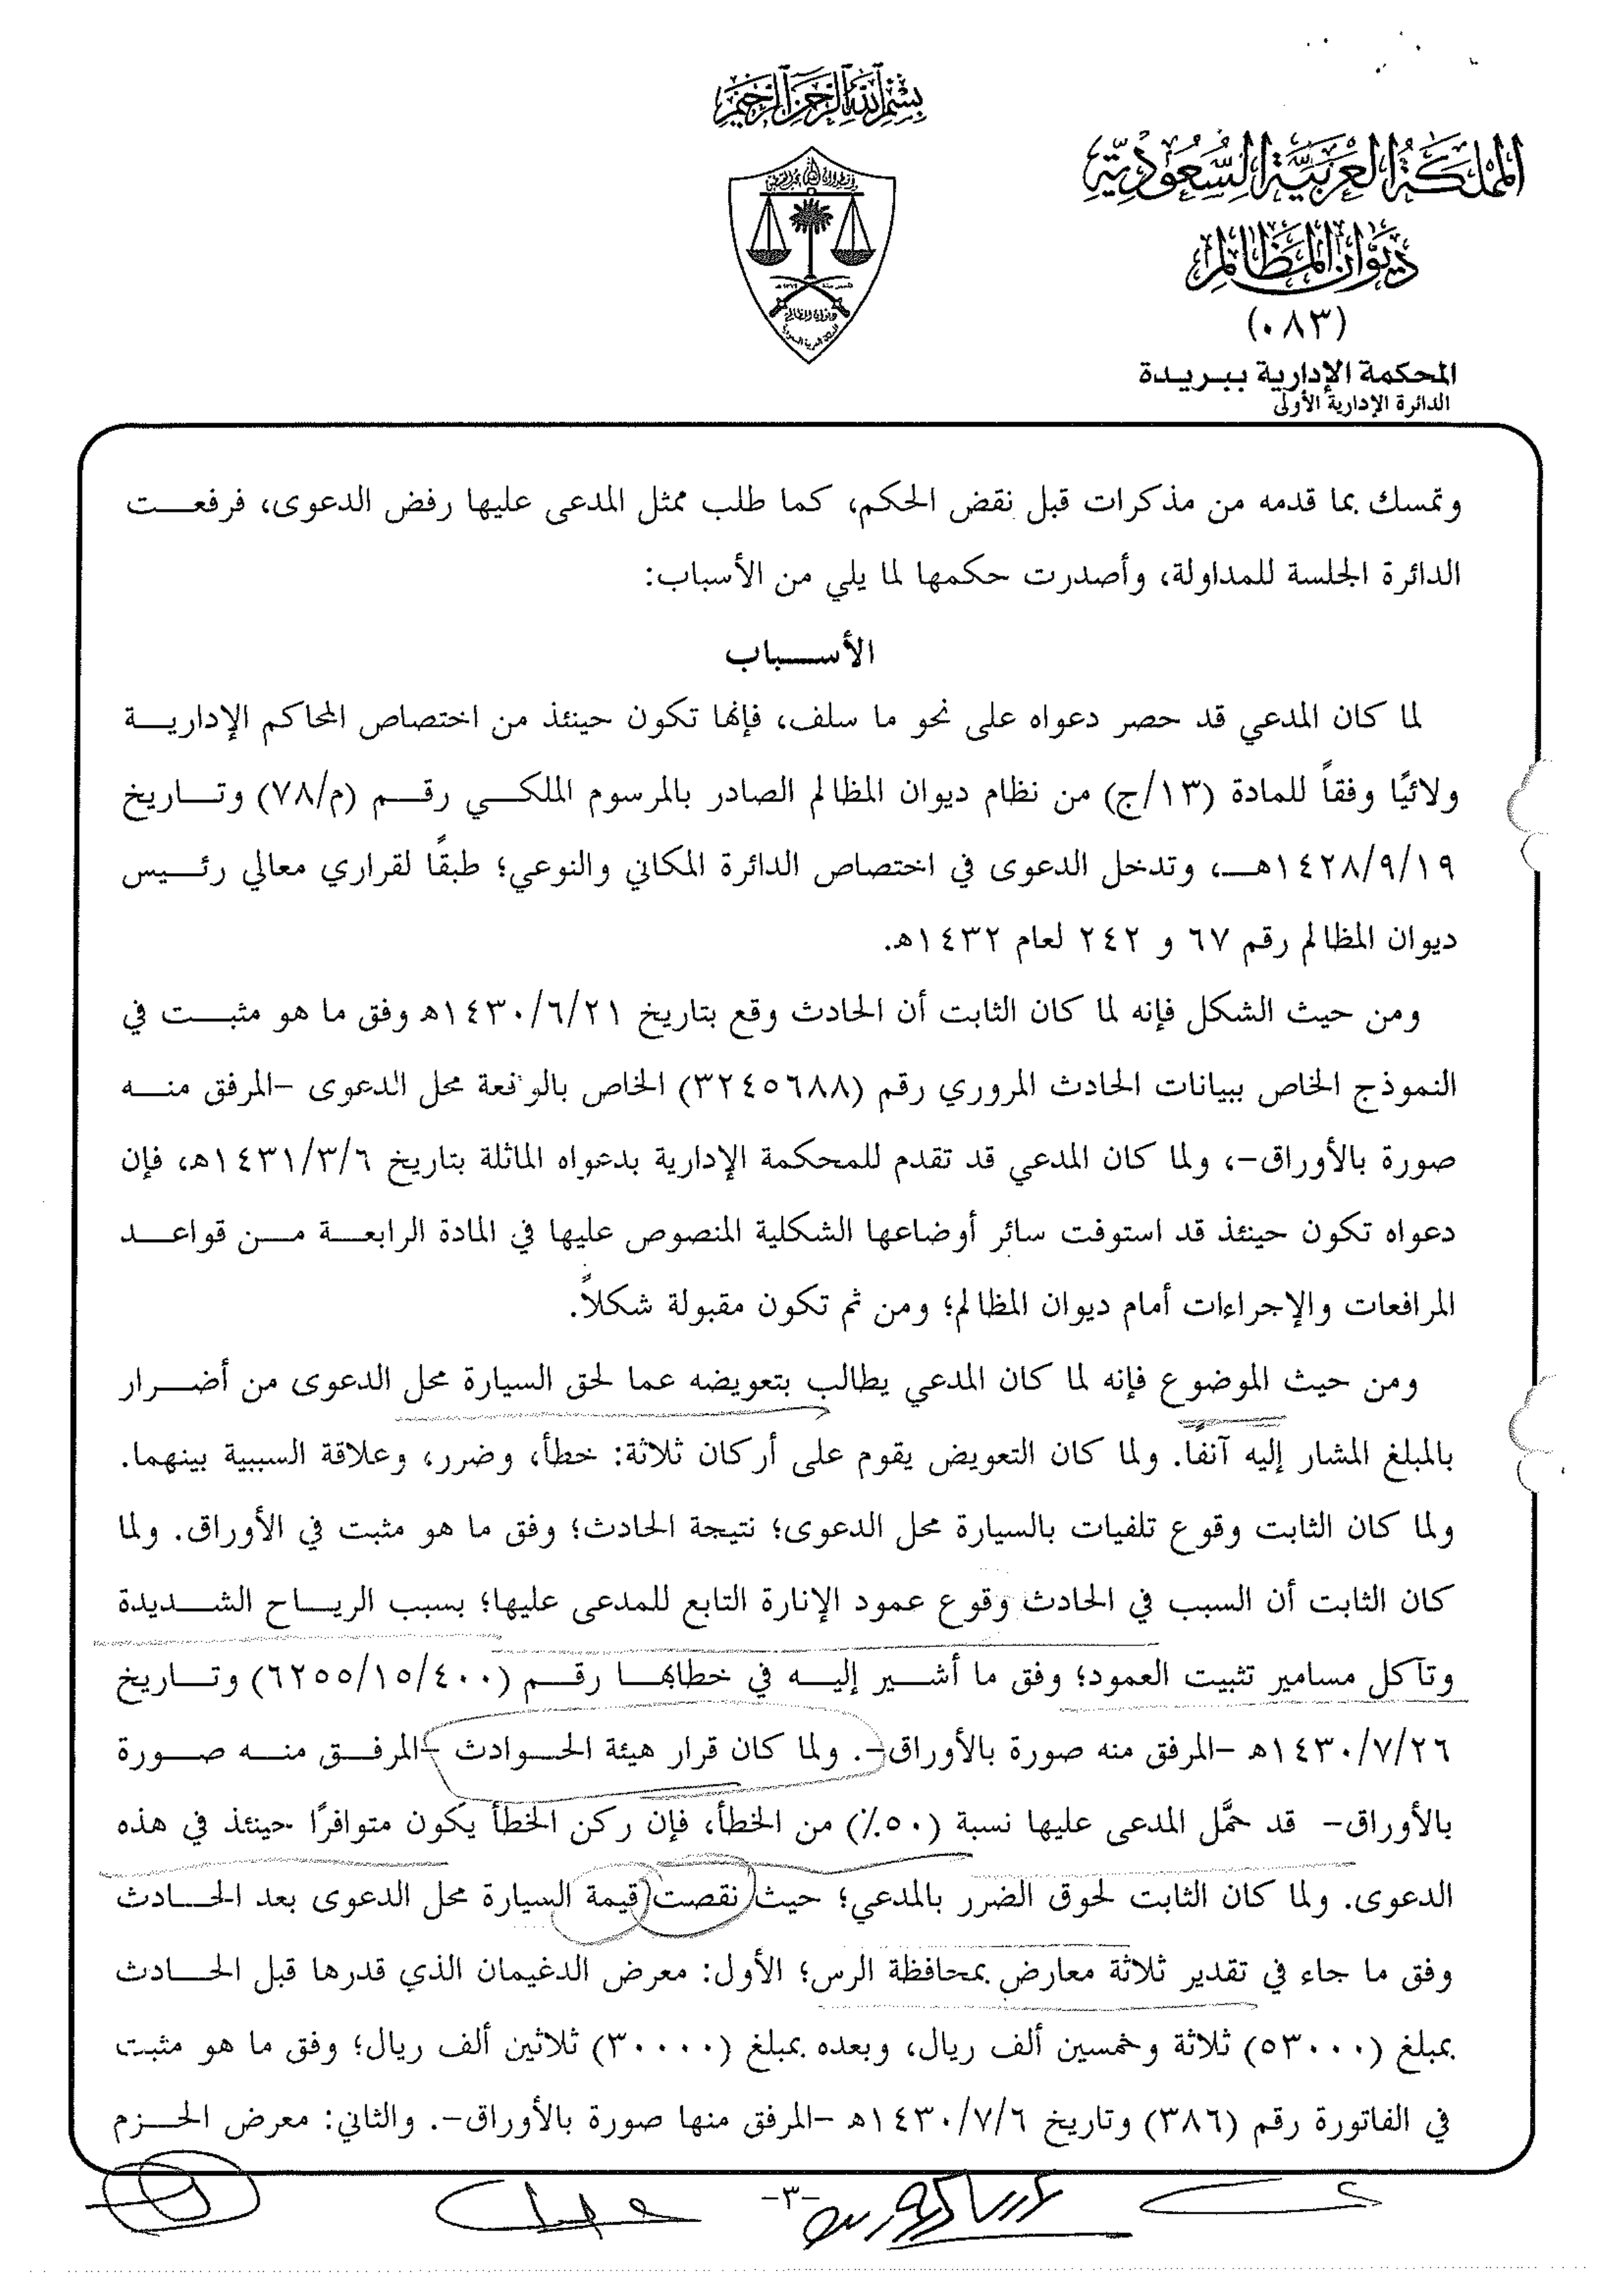 بسم الله الرحمن الرحيم
المملكة العربية السعودية
ديوان المظالم
(٠٨٣)
المحكمة الإدارية ببريدة
الدائرة الإدارية الأولى
وتمسك بما قدمه من مذكرات قبل نقض الحكم، كما طلب ممثل المدعى عليها رفض الدعوى، فرفعت
الدائرة الجلسة للمداولة، وأصدرت حكمها لما يلي من الأسباب:
الأسباب
لما كان المدعي قد حصر دعواه على نحو ما سلف، فإنها تكون حينئذ من اختصاص المحاكم الإدارية
ولائيًا وفقاً للمادة (١٣/ج) من نظام ديوان المظالم الصادر بالمرسوم الملكي رقم (م/٧٨) وتاريخ
١٤٢٨/٩/١٩هـ، وتدخل الدعوى في اختصاص الدائرة المكاني والنوعي؛ طبقًا لقراري معالي رئيس
ديوان المظالم رقم ٦٧ و ٢٤٢ لعام ١٤٣٢هـ.
ومن حيث الشكل فإنه لما كان الثابت أن الحادث وقع بتاريخ ١٤٣٠/٦/٢١هـ وفق ما هو مثبت في
النموذج الخاص ببيانات الحادث المروري رقم (٣٢٤٥٦٨٨) الخاص بالواقعة محل الدعوى –المرفق منه
صورة بالأوراق–، ولما كان المدعي قد تقدم للمحكمة الإدارية بدعواه الماثلة بتاريخ ١٤٣١/٣/٦هـ، فإن
دعواه تكون حينئذ قد استوفت سائر أوضاعها الشكلية المنصوص عليها في المادة الرابعة من قواعد
المرافعات والإجراءات أمام ديوان المظالم؛ ومن ثم تكون مقبولة شكلاً.
ومن حيث الموضوع فإنه لما كان المدعي يطالب بتعويضه عما لحق السيارة محل الدعوى من أضرار
بالمبلغ المشار إليه آنفًا. ولما كان التعويض يقوم على أركان ثلاثة: خطأ، وضرر، وعلاقة السببية بينهما.
ولما كان الثابت وقوع تلفيات بالسيارة محل الدعوى؛ نتيجة الحادث؛ وفق ما هو مثبت في الأوراق. ولما
كان الثابت أن السبب في الحادث وقوع عمود الإنارة التابع للمدعى عليها؛ بسبب الرياح الشديدة
وتآكل مسامير تثبيت العمود؛ وفق ما أشير إليه في خطابها رقم (٦٢٥٥/١٥/٤٠٠) وتاريخ
١٤٣٠/٧/٢٦هـ –المرفق منه صورة بالأوراق–. ولما كان قرار هيئة الحوادث –المرفق منه صورة
بالأوراق– قد حمَّل المدعى عليها نسبة (٥٠٪) من الخطأ، فإن ركن الخطأ يكون متوافرًا حينئذ في هذه
الدعوى. ولما كان الثابت لحوق الضرر بالمدعي؛ حيث نقصت قيمة السيارة محل الدعوى بعد الحادث
وفق ما جاء في تقدير ثلاثة معارض بمحافظة الرس؛ الأول: معرض الدغيمان الذي قدرها قبل الحادث
بمبلغ (٥٣٠٠٠) ثلاثة وخمسين ألف ريال، وبعده بمبلغ (٣٠٠٠٠) ثلاثين ألف ريال؛ وفق ما هو مثبت
في الفاتورة رقم (٣٨٦) وتاريخ ١٤٣٠/٧/٦هـ –المرفق منها صورة بالأوراق–. والثاني: معرض الحزم
–٣–